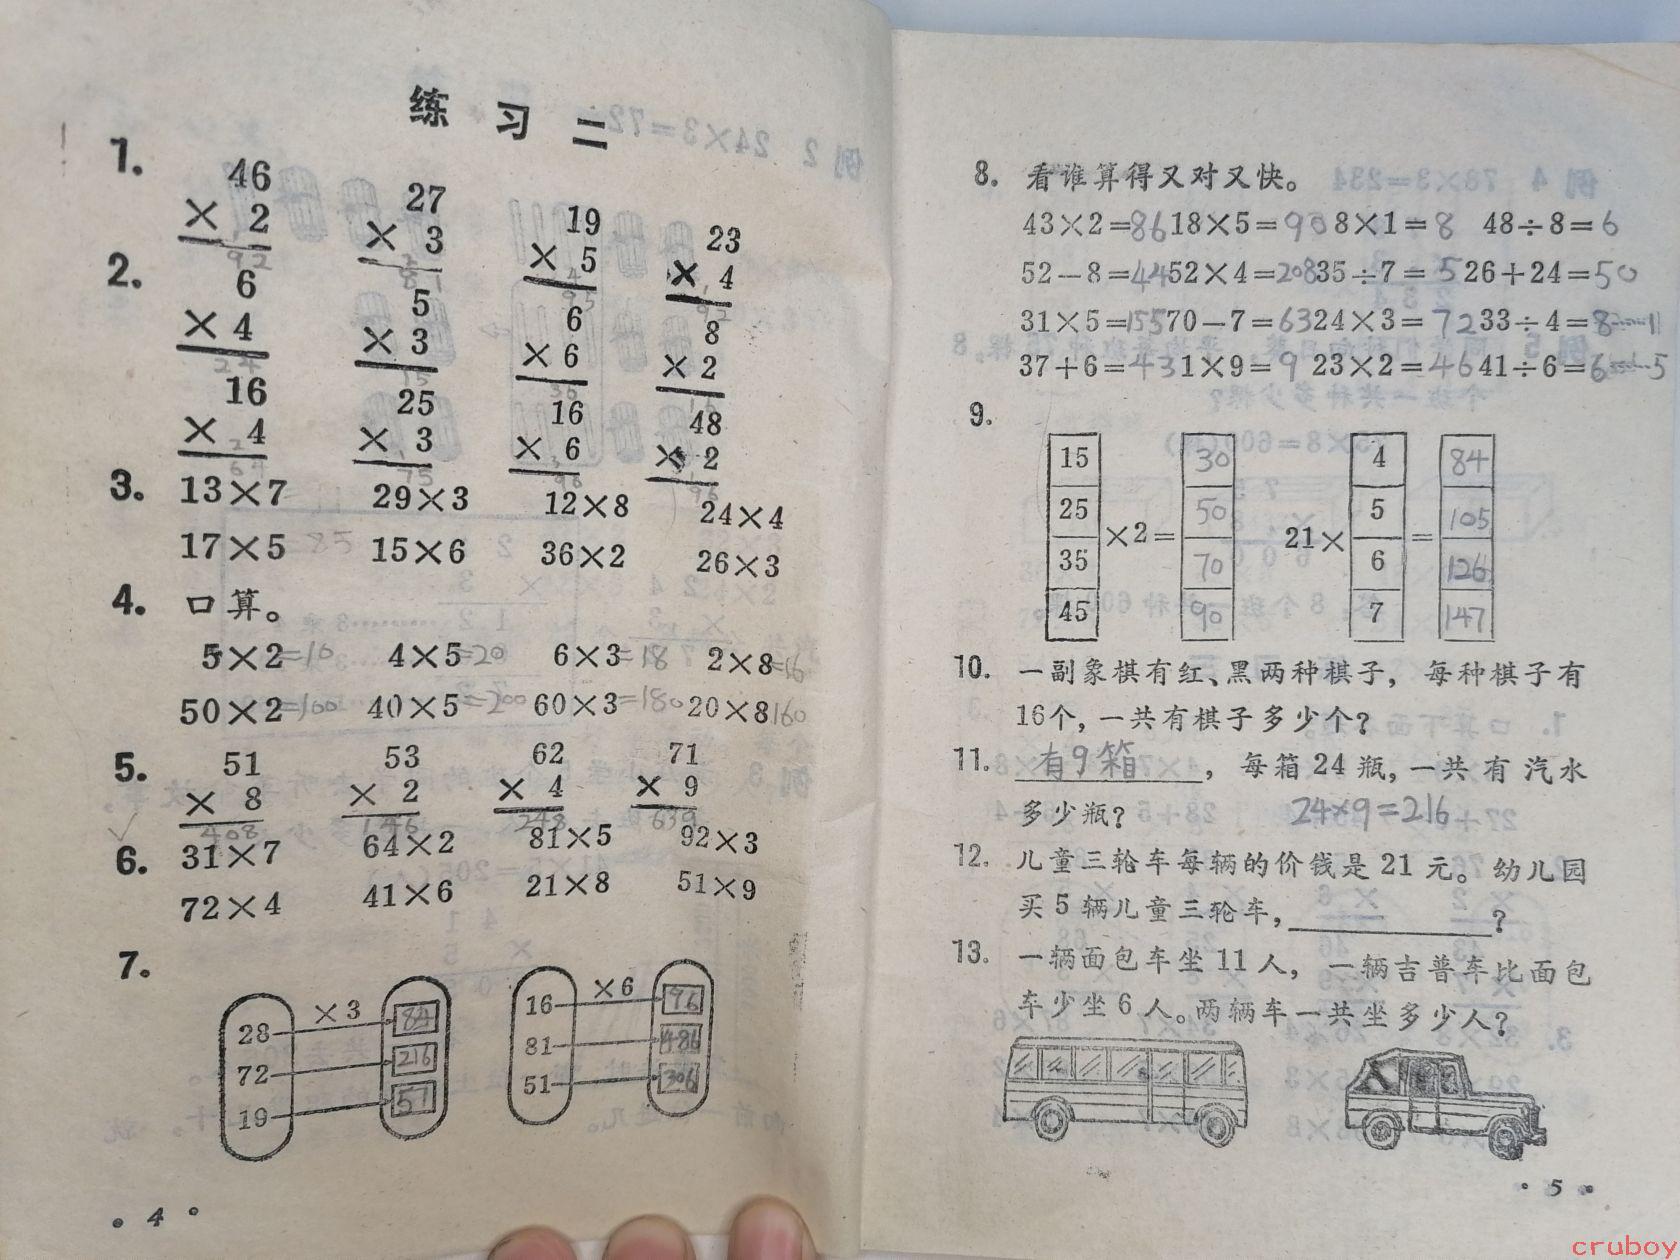 练习二
1. 46 27 19 23
× 2 × 3 × 5 × 4
92 81 95 92
2. 6 5 6 8
× 4 × 3 × 6 × 2
24 15 36 16
16 25 16 48
× 4 × 3 × 6 × 2
64 75 96 96
3. 13×7 29×3 12×8 24×4
17×5 15×6 36×2 26×3
4. 口算。
5×2=10 4×5=20 6×3=18 2×8=16
50×2=100 40×5=200 60×3=180 20×8 160
5. 51 53 62 71
× 8 × 2 × 4 × 9
408 146 248 639
6. 31×7 64×2 81×5 92×3
72×4 41×6 21×8 51×9
7.
×3 ×6
28 84 16 96
72 216 81 486
19 57 51 306
• 4 •
8. 看谁算得又对又快。
43×2=86 18×5=90 8×1=8 48÷8=6
52-8=44 52×4=208 35÷7=5 26+24=50
31×5=155 70-7=63 24×3=72 33÷4=8……1
37+6=43 1×9=9 23×2=46 41÷6=6……5
9.
15 30 4 84
25 50 5 105
×2= 21× =
35 70 6 126
45 90 7 147
10. 一副象棋有红、黑两种棋子，每种棋子有
16个，一共有棋子多少个？
11. 有9箱，每箱24瓶，一共有汽水
多少瓶？ 24×9=216
12. 儿童三轮车每辆的价钱是21元。幼儿园
买5辆儿童三轮车，＿＿＿＿＿＿？
13. 一辆面包车坐11人，一辆吉普车比面包
车少坐6人。两辆车一共坐多少人？
• 5 •
cruboy